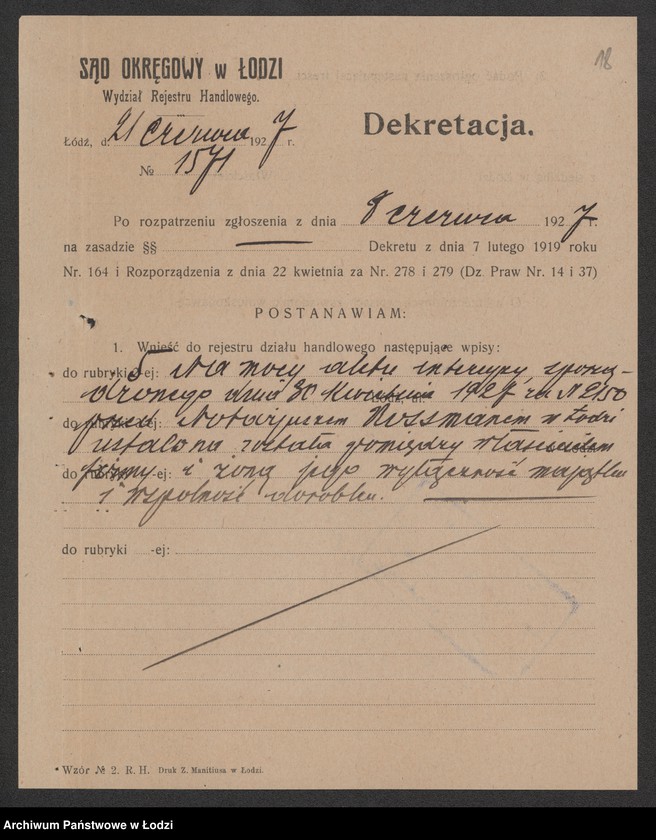 18
SĄD OKRĘGOWY w ŁODZI
Wydział Rejestru Handlowego.
Dekretacja.
Łódź, d. 21 czerwca 1927 r.
№ 1571
Po rozpatrzeniu zgłoszenia z dnia 8 czerwca 1927 r.
na zasadzie §§ Dekretu z dnia 7 lutego 1919 roku
Nr. 164 i Rozporządzenia z dnia 22 kwietnia za Nr. 278 i 279 (Dz. Praw Nr. 14 i 37)
POSTANAWIAM:
1. Wnieść do rejestru działu handlowego następujące wpisy:
do rubryki 5-ej: Na mocy aktu intercyzy, sporzą-
dzonego dnia 30 kwietnia 1927 za N 2150
do rubryki -ej: przed Notarjuszem Rossmanem w Łodzi
ustalona została pomiędzy właścicielem
do rubryki -ej: firmy i żoną jego wyłączność majątku
i wspólność dorobku.
do rubryki -ej:
Wzór № 2. R. H. Druk Z. Manitiusa w Łodzi.
Archiwum Państwowe w Łodzi